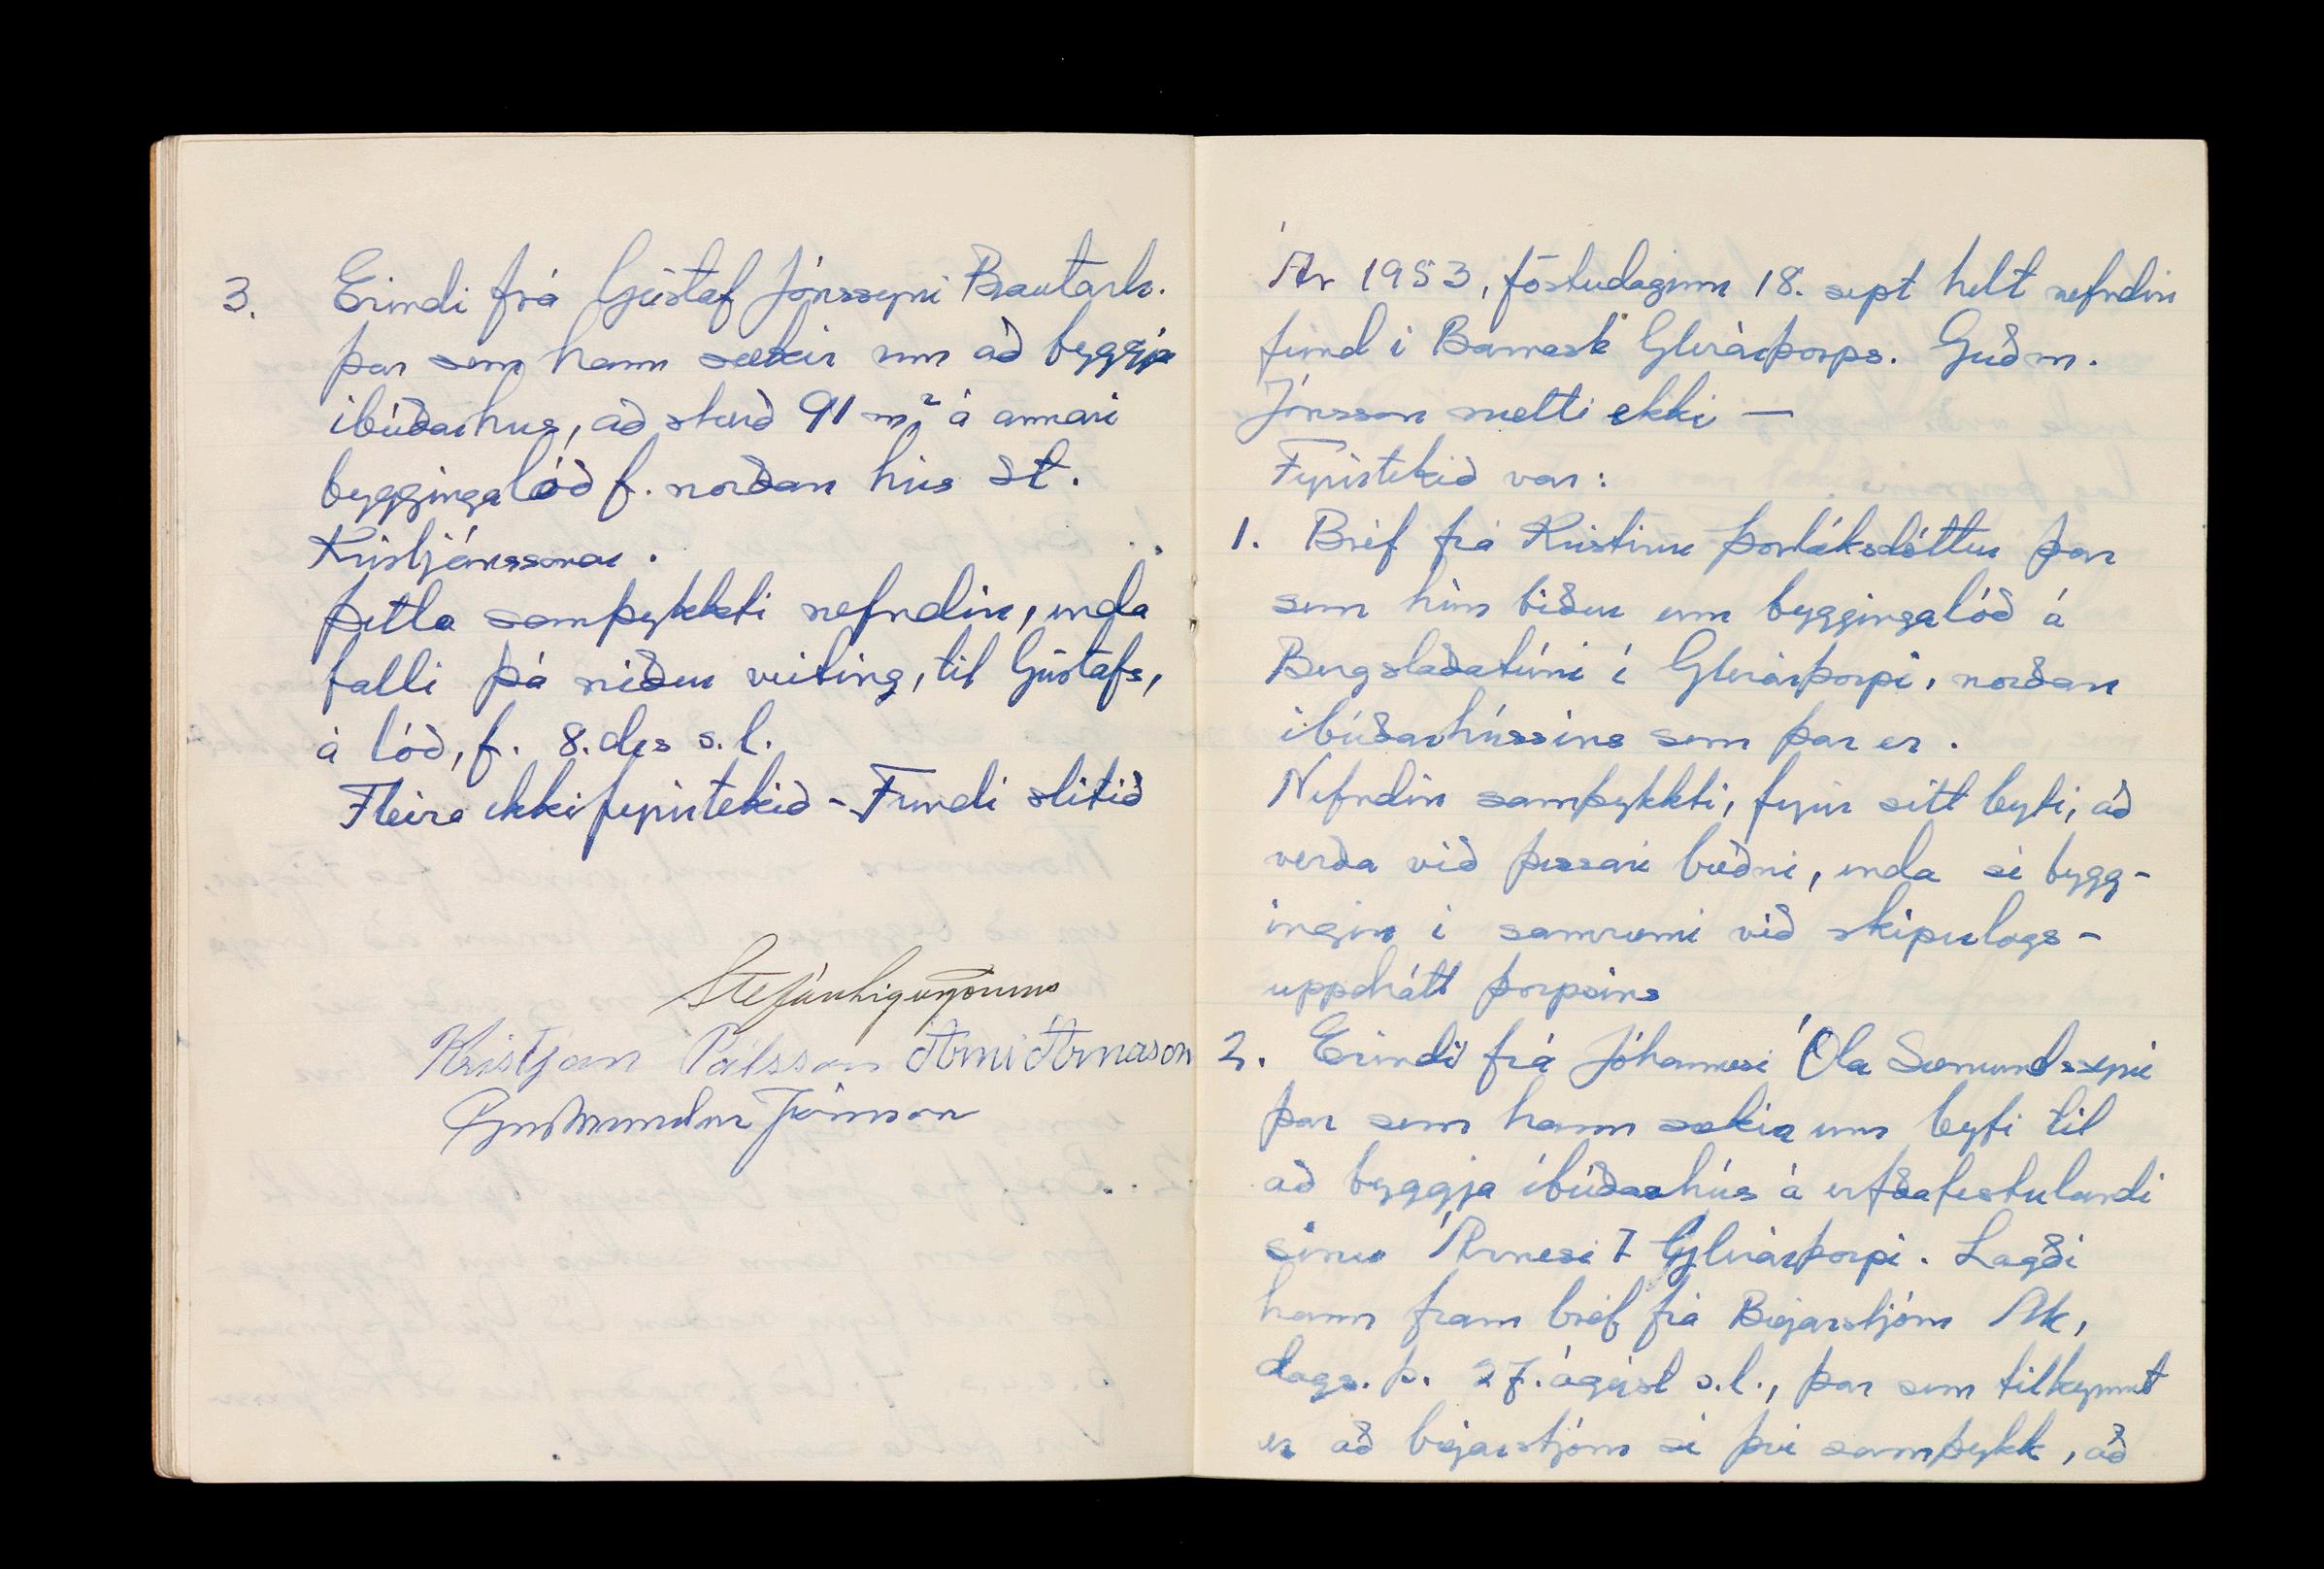 3. Erindi frá Gústaf Jónssyni Brautarh.
þar sem hann sækir um að byggja
íbúðarhús, að stærð 91 m² á annari
byggingalóð f. norðan hús St.
Kristjánssonar.
Þetta samþykkti nefndin, enda
falli þá niður veiting, til Gústafs,
á lóð, f. 8. des s.l.
Fleira ekki fyrirtekið - Fundi slitið
Kristján Pálsson Árni Árnason
Guðmundur Jónsson
Ár 1953, föstudaginn 18. sept helt nefndin
fund í Barnask Glerárþorps. Guðm.
Jónsson mætti ekki —
Fyrirtekið var:
1. Bréf frá Kristínu Þorláksdóttur þar
sem hún biður um byggingalóð á
Bergstaðatúni í Glerárþorpi, norðan
íbúðarhússins sem þar er.
Nefndin samþykkti, fyrir sitt leyti, að
verða við þessari bæðni, enda sé bygg-
ingin í samræmi við skipulags-
uppdrátt þorpsins
2. Erindi frá Jóhannesi Óla Sæmundssyni
þar sem hann sækir um leyfi til
að byggja íbúðarhús á erfðafestulandi
sínu Árnesi í Glerárþorpi. Lagði
hann fram bréf frá Bæjarstjórn Ak,
dags. þ. 27. ágúst s.l., þar sem tilkynnt
er að bæjarstjórn sé því samþykk, að